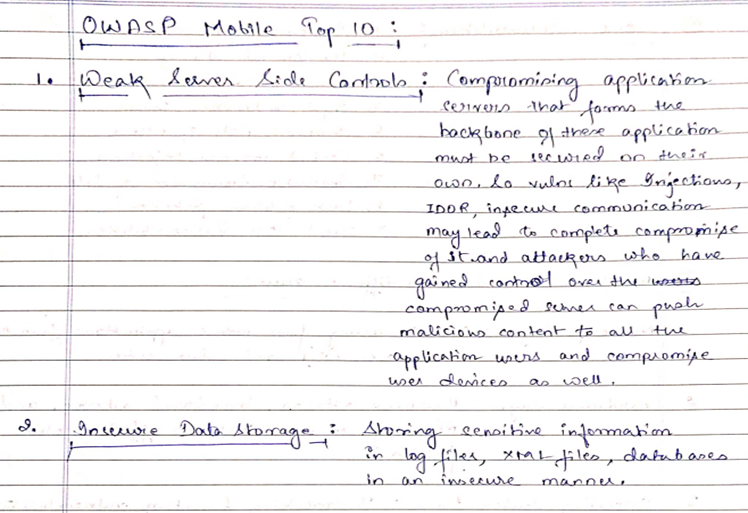 OWASP Mobile Top 10 :
1. Weak Server Side Controls : Compromising application
servers that forms the
backbone of these application
must be secured on their
own. So vulns like Injections,
IDOR, insecure communication
may lead to complete compromise
of it and attackers who have
gained control over the users
compromised server can push
malicious content to all the
application users and compromise
user devices as well.
2. Insecure Data Storage : Storing sensitive information
in log files, XML files, databases
in an insecure manner.